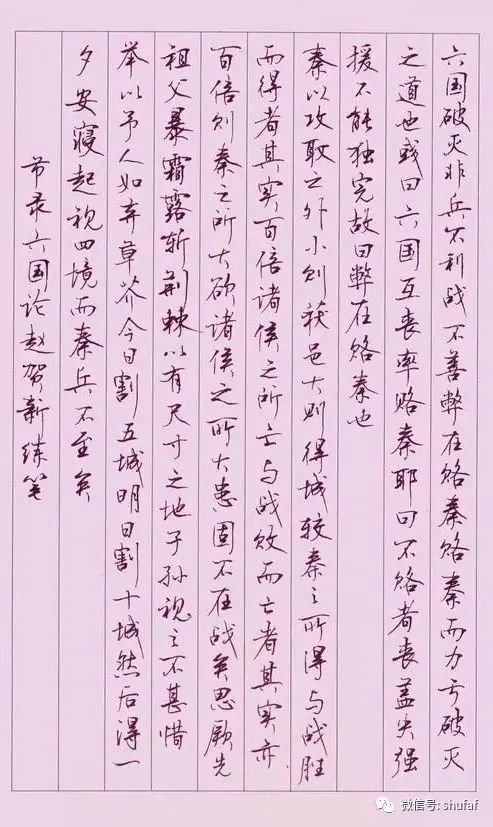 六国破灭非兵不利战不善弊在赂秦赂秦而力亏破灭
之道也或曰六国互丧率赂秦耶曰不赂者丧盖失强
援不能独完故曰弊在赂秦也
秦以攻取之外小则获邑大则得城较秦之所得与战胜
而得者其实百倍诸侯之所亡与战败而亡者其实亦
百倍则秦之所大欲诸侯之所大患固不在战矣思厥先
祖父暴霜露斩荆棘以有尺寸之地子孙视之不甚惜
举以予人如弃草芥今日割五城明日割十城然后得一
夕安寝起视四境而秦兵不至矣
节录六国论赵贺新练笔
微信号: shufaf